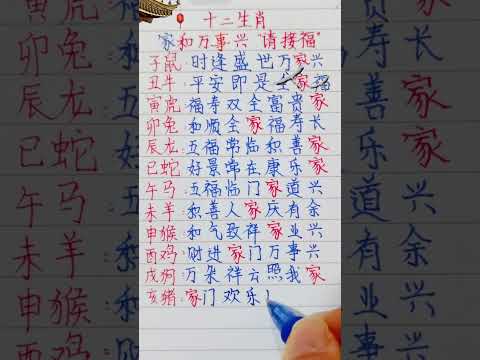 十二生肖
家和万事兴 "请接福"
子鼠:时逢盛世万家兴
丑牛:平安即是全家福
寅虎:福寿双全富贵家
卯兔:和顺全家福寿长
辰龙:五福常临和善家
巳蛇:好景常在康乐家
午马:五福临门家道兴
未羊:和善人家庆有余
申猴:和气致祥家业兴
酉鸡:财进家门万事兴
戌狗:万朵祥云照我家
亥猪:家门欢乐